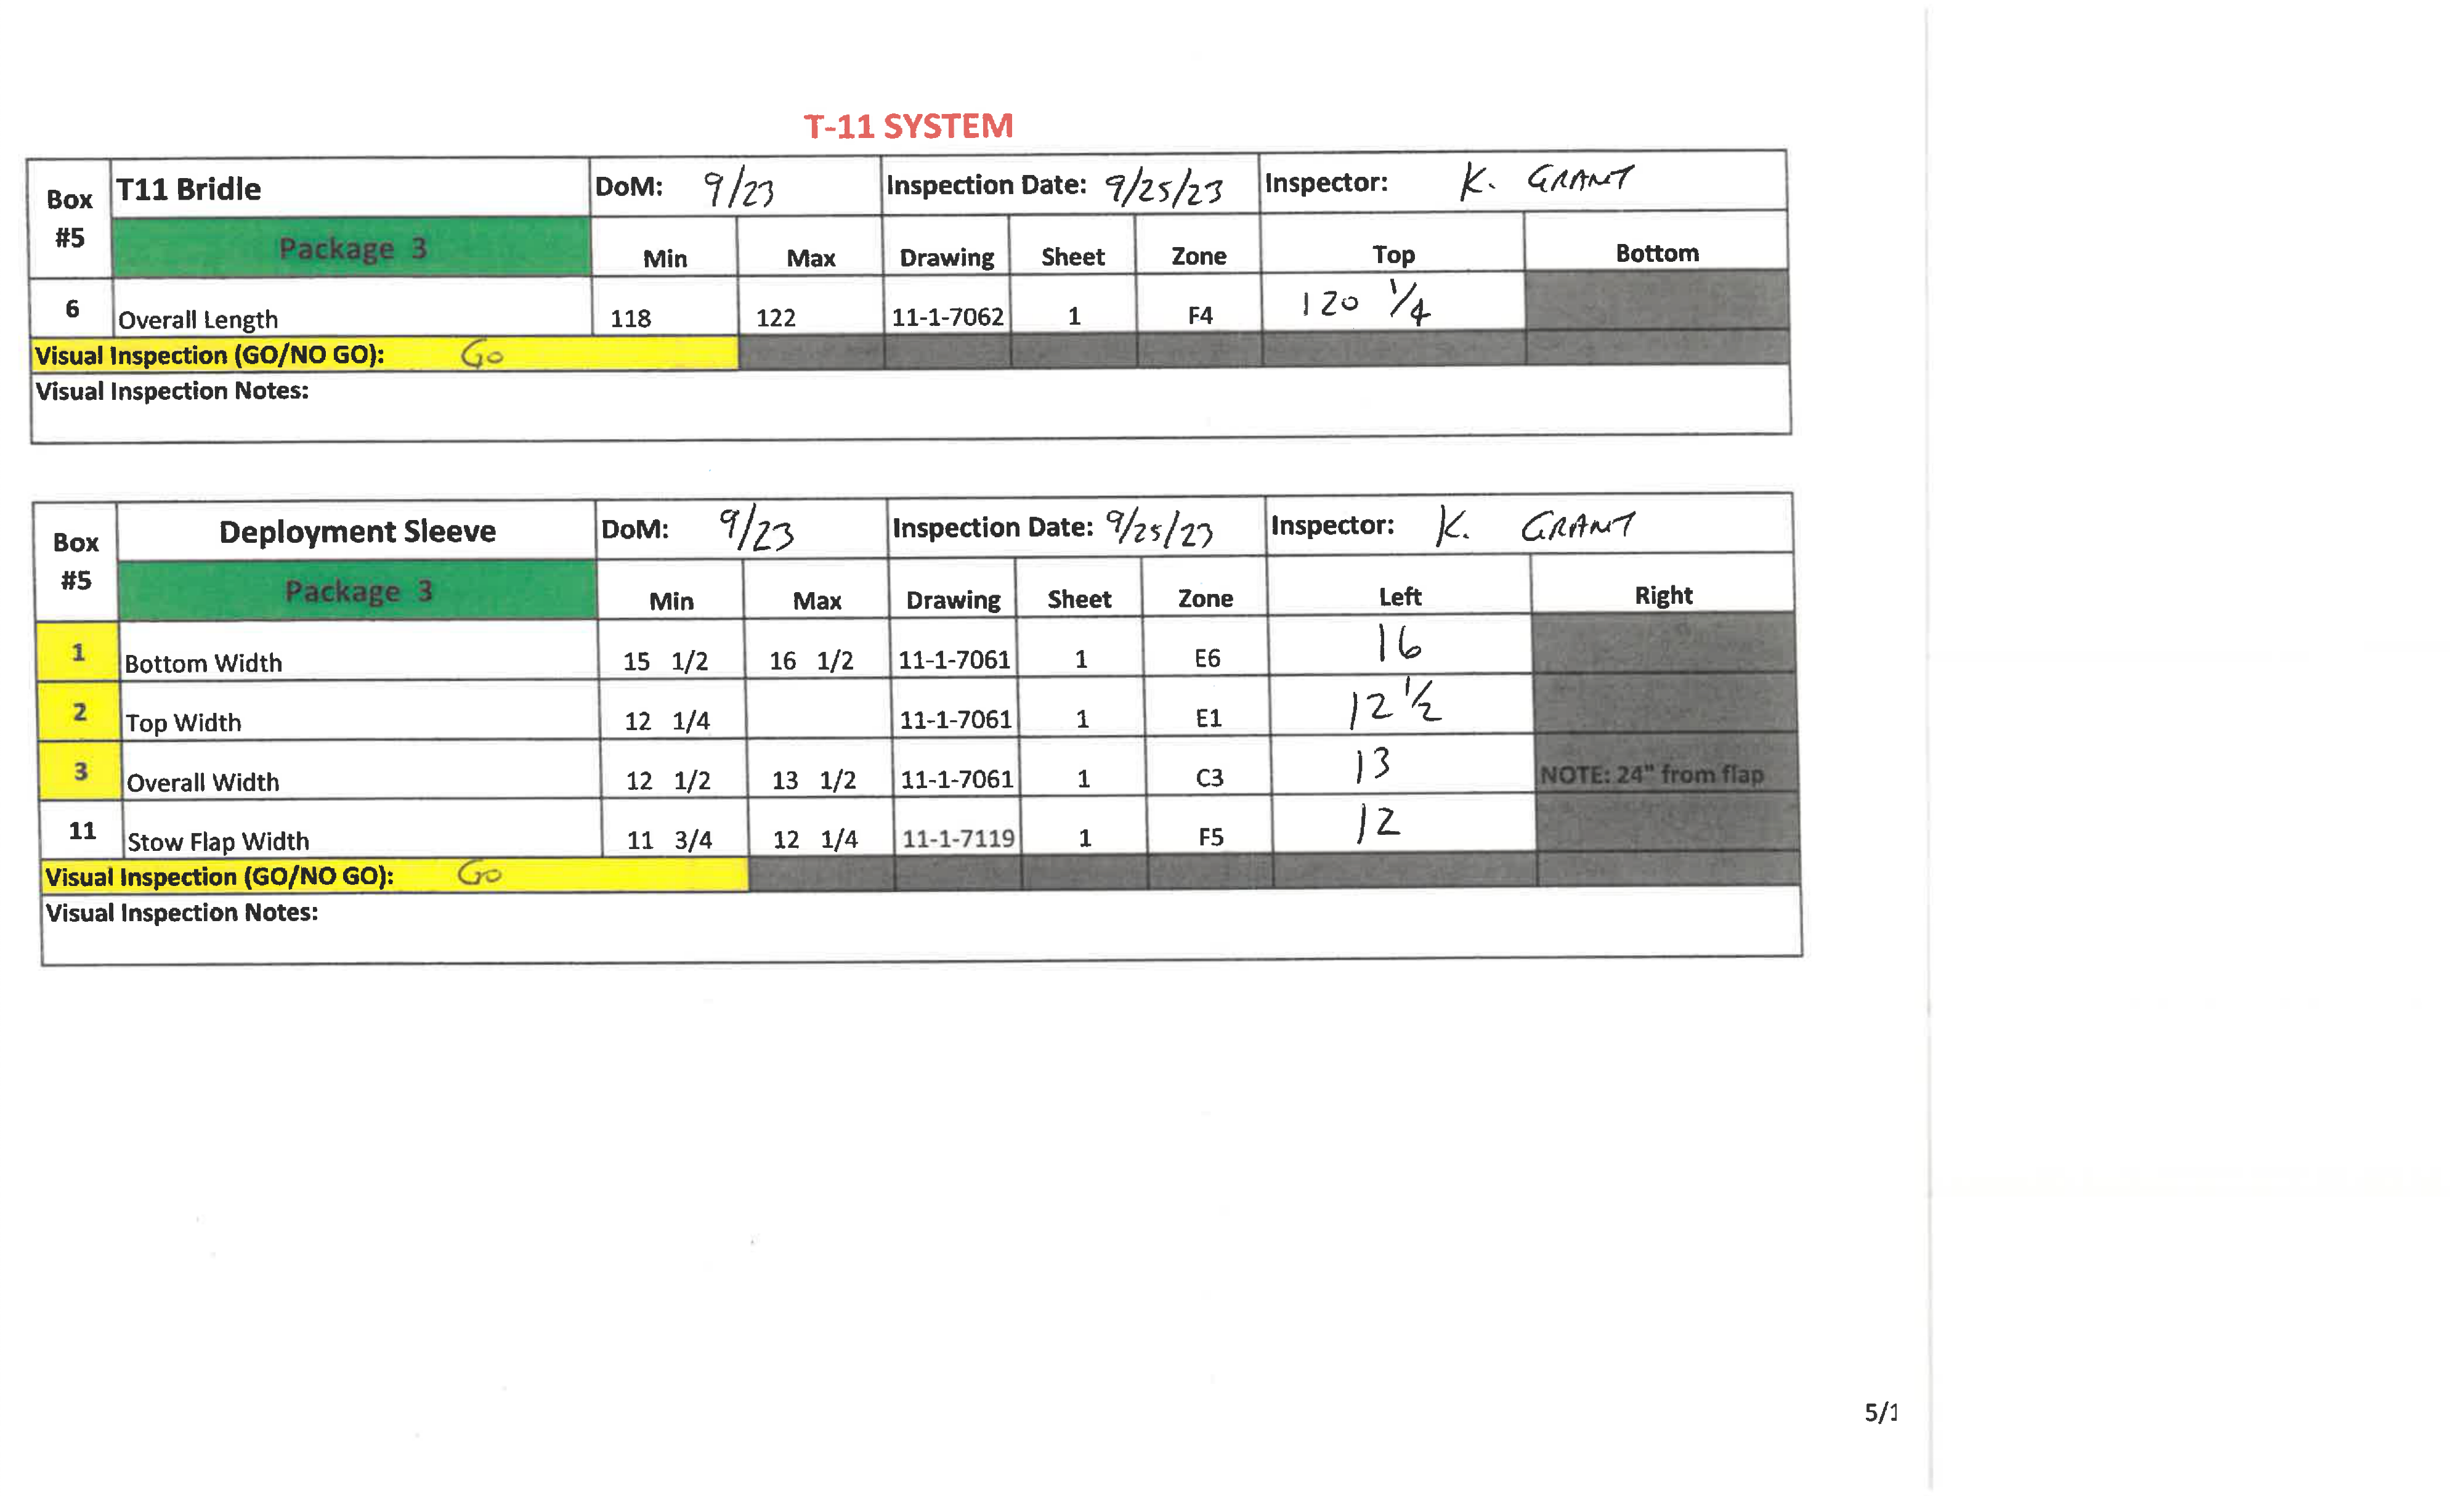 T-11 SYSTEM
Box #5 T11 Bridle DoM: 9/23 Inspection Date: 9/25/23 Inspector: K. GRANT
Package 3 Min Max Drawing Sheet Zone Top Bottom
6 Overall Length 118 122 11-1-7062 1 F4 120 1/4
Visual Inspection (GO/NO GO): GO
Visual Inspection Notes:
Box #5 Deployment Sleeve DoM: 9/23 Inspection Date: 9/25/23 Inspector: K. GRANT
Package 3 Min Max Drawing Sheet Zone Left Right
1 Bottom Width 15 1/2 16 1/2 11-1-7061 1 E6 16
2 Top Width 12 1/4 11-1-7061 1 E1 12 1/2
3 Overall Width 12 1/2 13 1/2 11-1-7061 1 C3 13 NOTE: 24" from flap
11 Stow Flap Width 11 3/4 12 1/4 11-1-7119 1 F5 12
Visual Inspection (GO/NO GO): GO
Visual Inspection Notes:
5/1